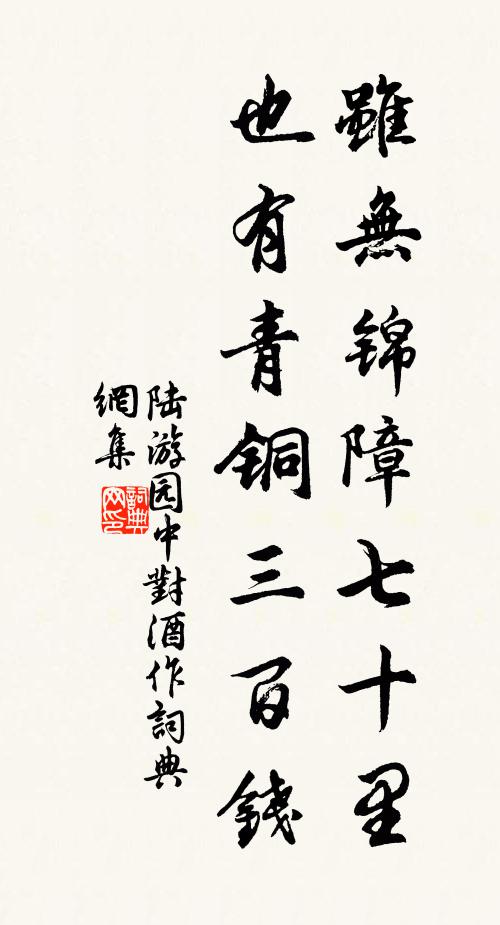 雖無錦障七十里
也有青铜三百錢
陆游园中對酒作詞典
網集
詞典
网印